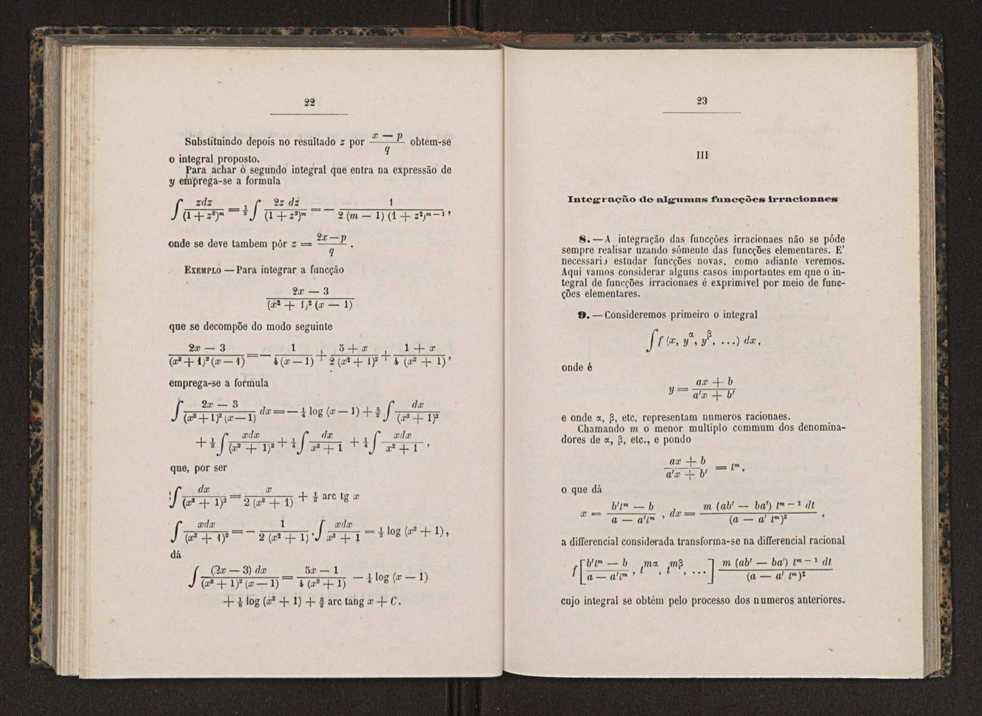 22
Substituindo depois no resultado z por (x — p)/q obtem-se
o integral proposto.
Para achar o segundo integral que entra na expressão de
y emprega-se a formula
∫ zdz/(1 + z²)ᵐ = ½ ∫ 2z dz/(1 + z²)ᵐ = — 1/(2 (m — 1) (1 + z²)ᵐ⁻¹),
onde se deve tambem pôr z = (2x — p)/q .
EXEMPLO — Para integrar a funcção
(2x — 3)/((x² + 1)² (x — 1))
que se decompõe do modo seguinte
(2x — 3)/((x² + 1)² (x — 1)) = — 1/(4 (x — 1)) + (5 + x)/(2 (x² + 1)²) + (1 + x)/(4 (x² + 1)),
emprega-se a formula
∫ (2x — 3)/((x² + 1)² (x — 1)) dx = — ¼ log (x — 1) + 5/2 ∫ dx/(x² + 1)²
+ ½ ∫ xdx/(x² + 1)² + ¼ ∫ dx/(x² + 1) + ¼ ∫ xdx/(x² + 1) ,
que, por ser
∫ dx/(x² + 1)² = x/(2 (x² + 1)) + ½ arc tg x
∫ xdx/(x² + 1)² = — 1/(2 (x² + 1)), ∫ xdx/(x² + 1) = ½ log (x² + 1),
dá
∫ (2x — 3) dx/((x² + 1)² (x — 1)) = (5x — 1)/(4 (x² + 1)) — ¼ log (x — 1)
+ ⅛ log (x² + 1) + 3/2 arc tang x + C.
23
III
Integração de algumas funcções irracionaes
8. — A integração das funcções irracionaes não se póde
sempre realisar uzando sómente das funcções elementares. E'
necessario estudar funcções novas, como adiante veremos.
Aqui vamos considerar alguns casos importantes em que o in-
tegral de funcções irracionaes é exprimivel por meio de func-
ções elementares.
9. — Consideremos primeiro o integral
∫ f (x, y^α, y^β, ...) dx,
onde é
y = (ax + b)/(a'x + b')
e onde α, β, etc. representam numeros racionaes.
Chamando m o menor multiplo commum dos denomina-
dores de α, β, etc., e pondo
(ax + b)/(a'x + b') = tᵐ,
o que dá
x = (b'tᵐ — b)/(a — a'tᵐ) , dx = m (ab' — ba') tᵐ⁻¹ dt/(a — a' tᵐ)² ,
a differencial considerada transforma-se na differencial racional
f [(b'tᵐ — b)/(a — a'tᵐ), t^mα, t^mβ, ...] m (ab' — ba') tᵐ⁻¹ dt/(a — a' tᵐ)²
cujo integral se obtém pelo processo dos numeros anteriores.